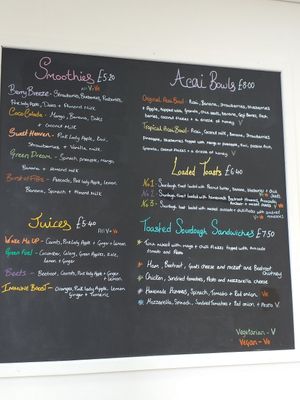 Smoothies £5.20
All V+Ve
Berry Breeze - Strawberries, Blueberries, Raspberries,
Pink lady Apple, Dates + Almond milk
Coco Colada - Mango, Banana, Dates
+ Coconut milk
Sweet Heaven - Pink Lady Apple, Kiwi,
Strawberries, + Vanilla milk
Green Dream - Spinach, pineapple, mango,
Banana + Almond milk
Avocado, Pink lady Apple, Lemon
Banana, Spinach + Almond milk
Juices £5.40
All V+Ve
Wake Me UP - Carrots, Pink Lady Apple + Ginger + Lemon
Green Fuel - Cucumber, Celery, Green Apples, Kale,
Lemon + Ginger
Beets - Beetroot, Carrots, Pink lady Apple + Ginger
+ Lemon
Immune Boost - Oranges, Pink lady Apple, Lemon
Ginger + Turmeric
Acai Bowls £8.00
Original Acai Bowl - Acai, Banana, Strawberries, blueberries
+ Apple, topped with Granola, chia seeds, banana, Goji Berries, kiwi,
coconut flakes + a drizzle of honey V
Tropical Acai Bowl - Acai, Coconut milk, banana, Strawberries
pineapple, topped with mango + pineapple, kiwi, passion fruit,
Granola, coconut flakes + a drizzle of honey V
Loaded Toasts £6.40
No 1: Sourdough toast loaded with Peanut butter, banana, blueberries + chia
seeds
No 2: Sourdough toast loaded with homemade Beetroot Hummus, Avocado,
No 3: Sourdough toast loaded with
Toasted Sourdough Sandwiches £7.50
* Tuna mixed with mayo + chilli flakes topped with Avocado
Tomato and Pesto
* Ham, Beetroot, Goats cheese and rocket and Beetroot
Chutney
* Chicken, Sundried tomatoes, Pesto and mozzarella cheese
* Homemade Hummus, Spinach, Tomato + Red onion Ve
* Mozzarella, Spinach, Sundried Tomatoes + Red onion + Pesto V
Vegetarian - V
Vegan - Ve